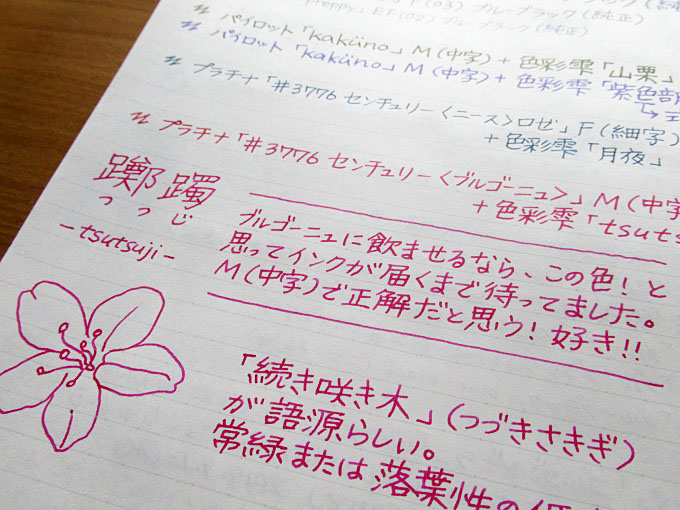 preppy」EF(02) ブルーブラック(純正)
〃 パイロット「kaküno」M(中字)+色彩雫「山栗」
〃 パイロット「kaküno」M(中字)+色彩雫「紫式部
〃 プラチナ「#3776 センチュリー〈ニース〉ロゼ」F(細字)
+色彩雫「月夜」
〃 プラチナ「#3776 センチュリー〈ブルゴーニュ〉」M(中字
+色彩雫「tsuts
躑躅
つつじ
-tsutsuji-
ブルゴーニュに飲ませるなら、この色!と
思ってインクが届くまで待ってました。
M(中字)で正解だと思う!好き!!
「続き咲き木」(つづきさきぎ)
が語源らしい。
常緑または落葉性の